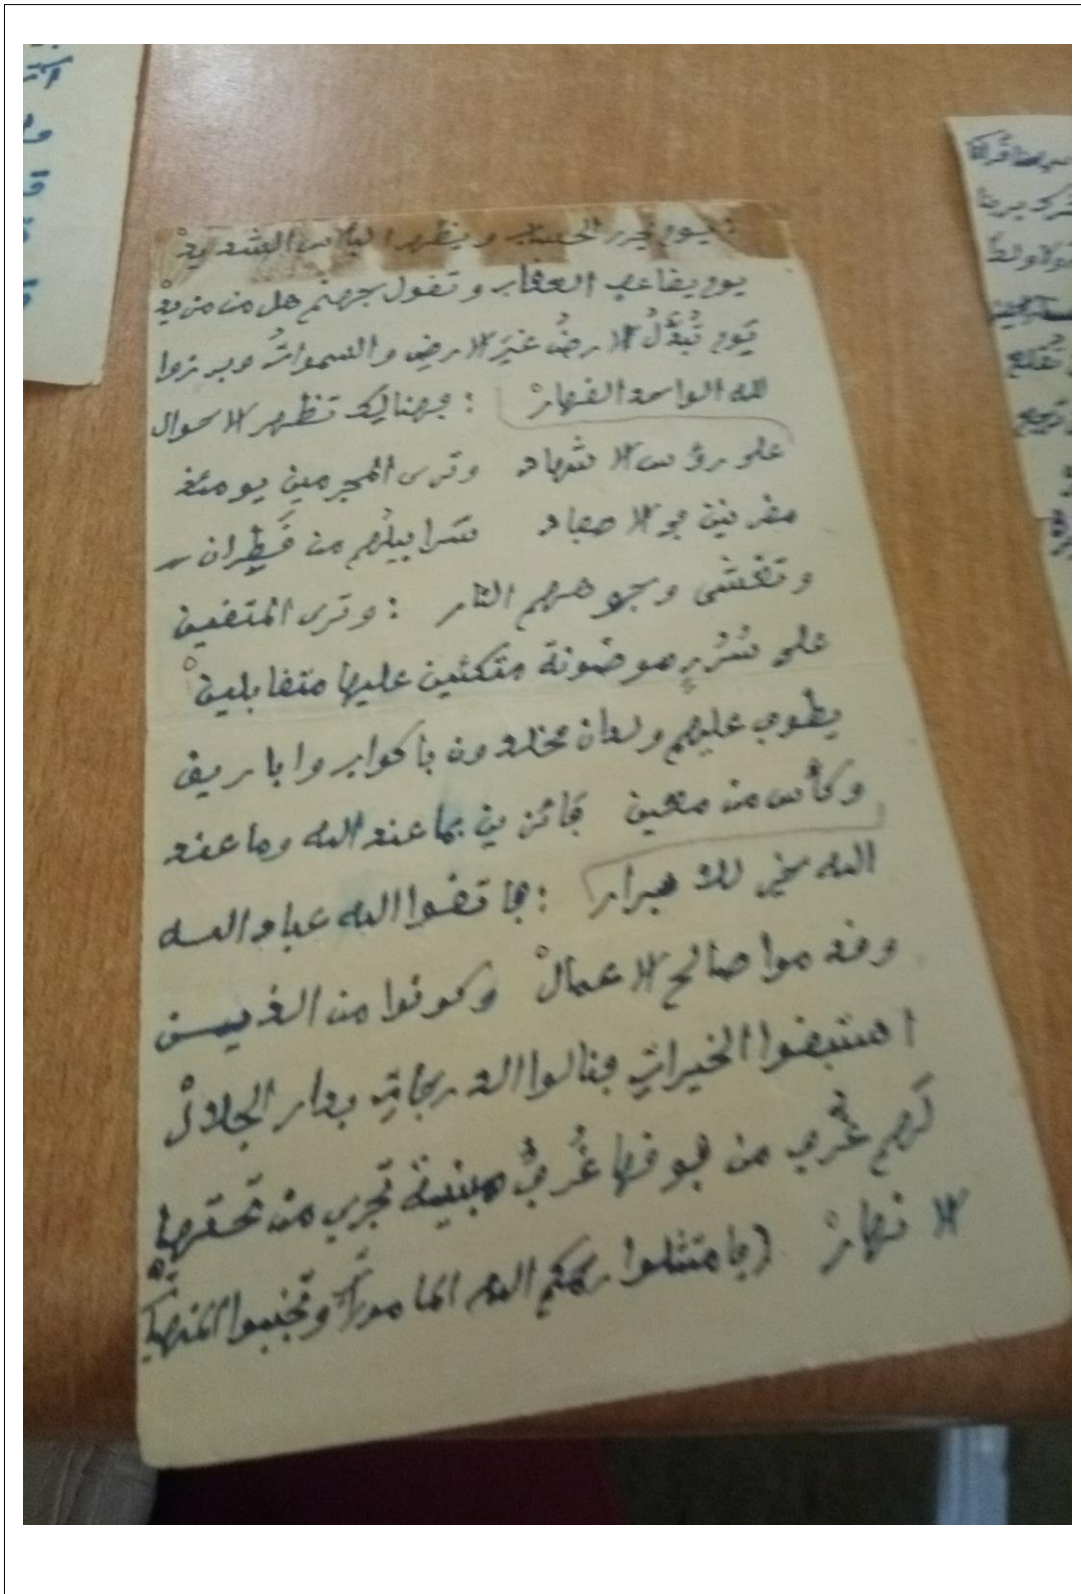 : يوم يجرد الحساب ويظهر الباس الشديد
يوم يضاعف العذاب وتقول جهنم هل من مزيد
يَوم تُبَدَّلُ الارضُ غيرَ الارضِ والسمواتُ وبرزوا
لله الواحد القهارْ : فهنالك تظهر الاحوال
على رؤس الاشهاد وترى المجرمين يومئذ
مقرنين في الاصفاد سَرابيلُهم من قَطِران
وتغشى وجوههم النار : وترى المتقين
على سُرُرٍ موضونة متكئين عليها متقابلينْ
يطوف عليهم ولدان مخلدون باكواب واباريق
وكأس من معين فائزين بما عند الله وما عند
الله خير للابرار : فاتقوا الله عباد الله
وقدموا صالح الاعمالْ وكونوا من الذيـن
استبقوا الخيراتِ فنالوا الدرجاتِ بدار الجلالْ
لَهم غُرف من فوقها غُرفٌ مبنية تجري من تحتها
الانهارْ (فامتثلوا رحمكم الله المامورات وتجنبوا المنهيات